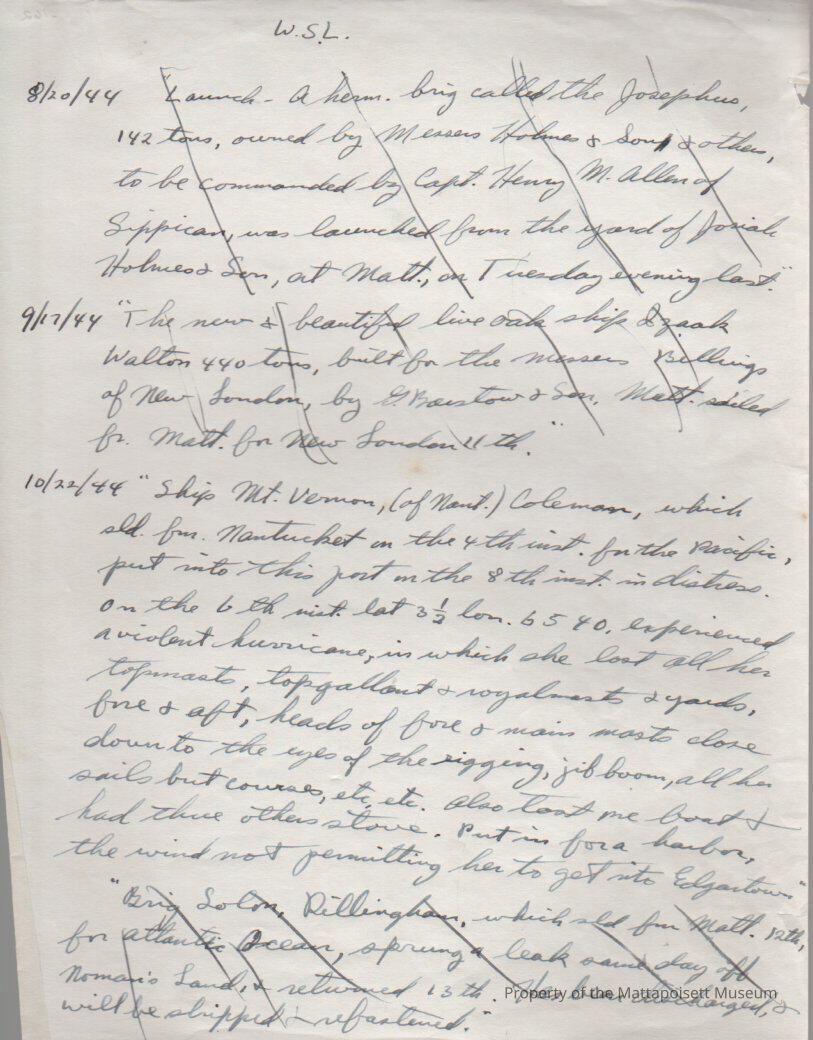 W.S.L.
8/20/44 Launch - A herm. brig called the Josephus,
142 tons, owned by Messers Holmes & Son & others,
to be commanded by Capt. Henry M. Allen of
Sippican, was launched from the yard of Josiah
Holmes & Son, at Matt., on Tuesday evening last."
9/17/44 "The new & beautiful live oak ship Izaak
Walton 440 tons, built for the messers Billings
of New London, by G. Barstow & Son, Matt. sailed
fr. Matt. for New London 11th."
10/22/44 "Ship Mt. Vernon, (of Nant.) Coleman, which
sld. fm. Nantucket on the 4th inst. for the Pacific,
put into this port on the 8th inst. in distress.
On the 6th inst. lat 3½ lon. 65 40, experienced
a violent hurricane, in which she lost all her
topmasts, topgallant & royalmasts & yards,
fore & aft, heads of fore & main masts close
down to the eyes of the rigging, jib boom, all her
sails but courses, etc, etc. Also lost one boat &
had three others stove. Put in for a harbor,
the wind not permitting her to get into Edgartown"
"Brig Solon, Dillingham, which sld fm Matt. 12th,
for atlantic Ocean, sprung a leak same day off
Noman's Land, & returned 13th. Has been discharged, &
will be stripped & refastened."
Property of the Mattapoisett Museum